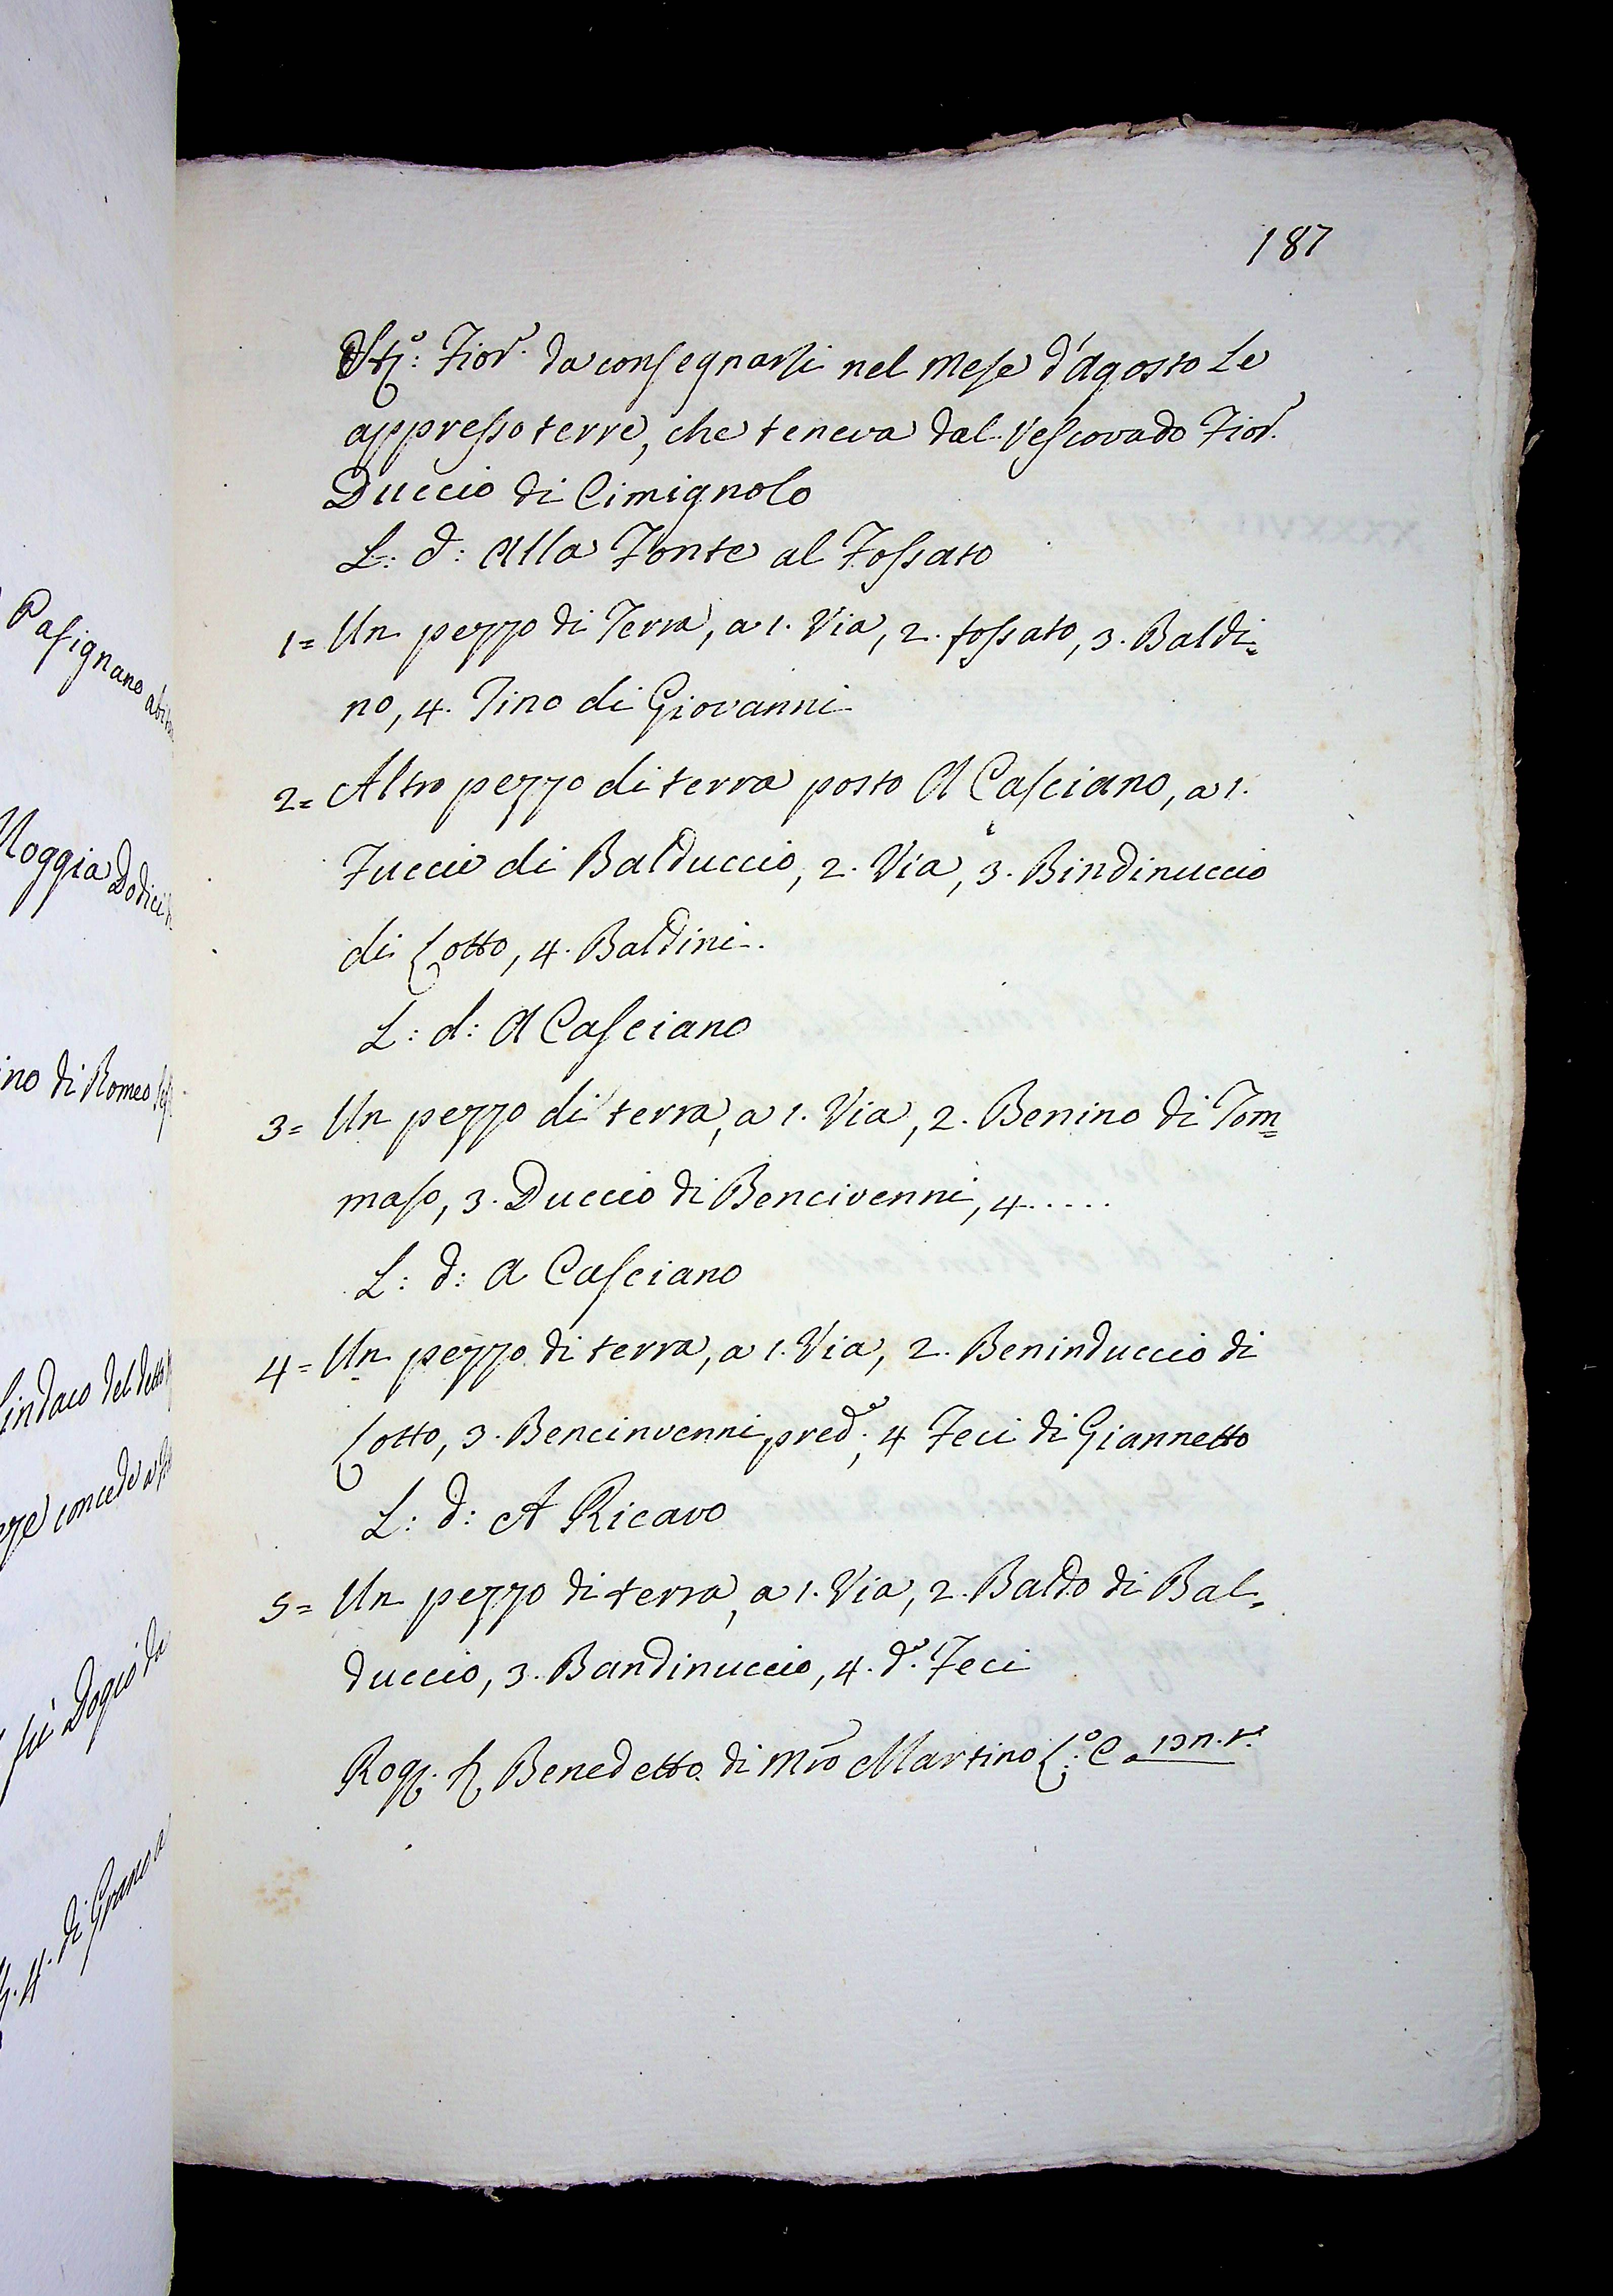 187
Pasignano
Moggia Dodici
ino di Romeo
Sindaco del detto
concede a
fù Dogio da
di Grano a
Fior. da consegnarsi nel Mese d'Agosto Le
appresso terre, che teneva dal Vescovado Fior.
Duccio di Cimignolo
L: d: Alla Fonte al Fossato
1= Un pezzo di Terra, a 1. Via, 2. fossato, 3. Baldi=
no, 4. Tino di Giovanni
2= Altro pezzo di terra posto A Casciano, a 1.
Fuccio di Balduccio, 2. Via, 3. Bindinuccio
di Lotto, 4. Baldini.
L: d: A Casciano
3= Un pezzo di terra, a 1. Via, 2. Benino di Tom=
maso, 3. Duccio di Bencivenni, 4.....
L: d: A Casciano
4= Un pezzo di terra, a 1. Via, 2. Beninduccio di
Lotto, 3. Bencinvenni pred.o, 4 Feci di Giannetto
L: d: A Ricavo
5= Un pezzo di terra, a 1. Via, 2. Baldo di Bal=
duccio, 3. Bandinuccio, 4. d.o Feci
Rog. Benedetto di Mro Martino L.o C a 13 n. 1.